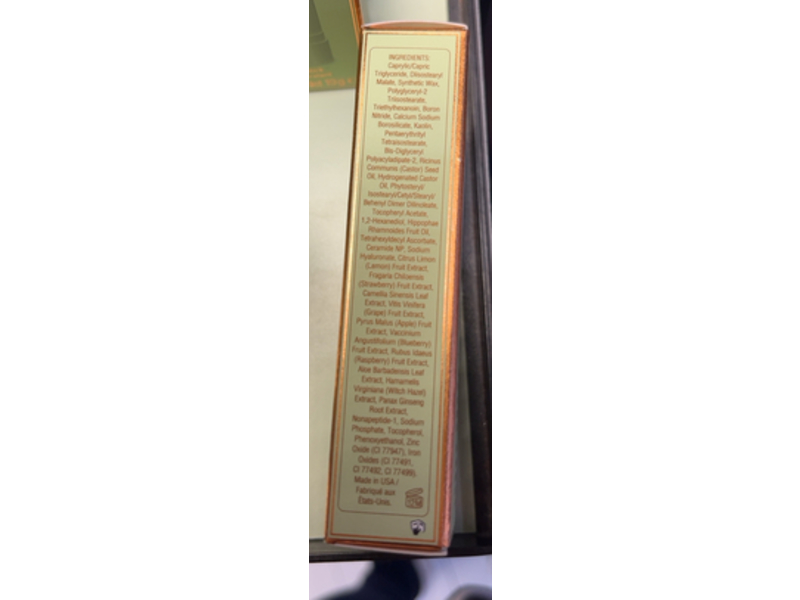 INGREDIENTS:
Caprylic/Capric
Triglyceride, Diisostearyl
Malate, Synthetic Wax,
Polyglyceryl-2
Triisostearate,
Triethylhexanoin, Boron
Nitride, Calcium Sodium
Borosilicate, Kaolin,
Pentaerythrityl
Tetraisostearate,
Bis-Diglyceryl
Polyacyladipate-2, Ricinus
Communis (Castor) Seed
Oil, Hydrogenated Castor
Oil, Phytosteryl/
Isostearyl/Cetyl/Stearyl/
Behenyl Dimer Dilinoleate,
Tocopheryl Acetate,
1,2-Hexanediol, Hippophae
Rhamnoides Fruit Oil,
Tetrahexyldecyl Ascorbate,
Ceramide NP, Sodium
Hyaluronate, Citrus Limon
(Lemon) Fruit Extract,
Fragaria Chiloensis
(Strawberry) Fruit Extract,
Camellia Sinensis Leaf
Extract, Vitis Vinifera
(Grape) Fruit Extract,
Pyrus Malus (Apple) Fruit
Extract, Vaccinium
Angustifolium (Blueberry)
Fruit Extract, Rubus Idaeus
(Raspberry) Fruit Extract,
Aloe Barbadensis Leaf
Extract, Hamamelis
Virginiana (Witch Hazel)
Extract, Panax Ginseng
Root Extract,
Nonapeptide-1, Sodium
Phosphate, Tocopherol,
Phenoxyethanol, Zinc
Oxide (CI 77947), Iron
Oxides (CI 77491,
CI 77492, CI 77499).
Made in USA /
Fabriqué aux
États-Unis.